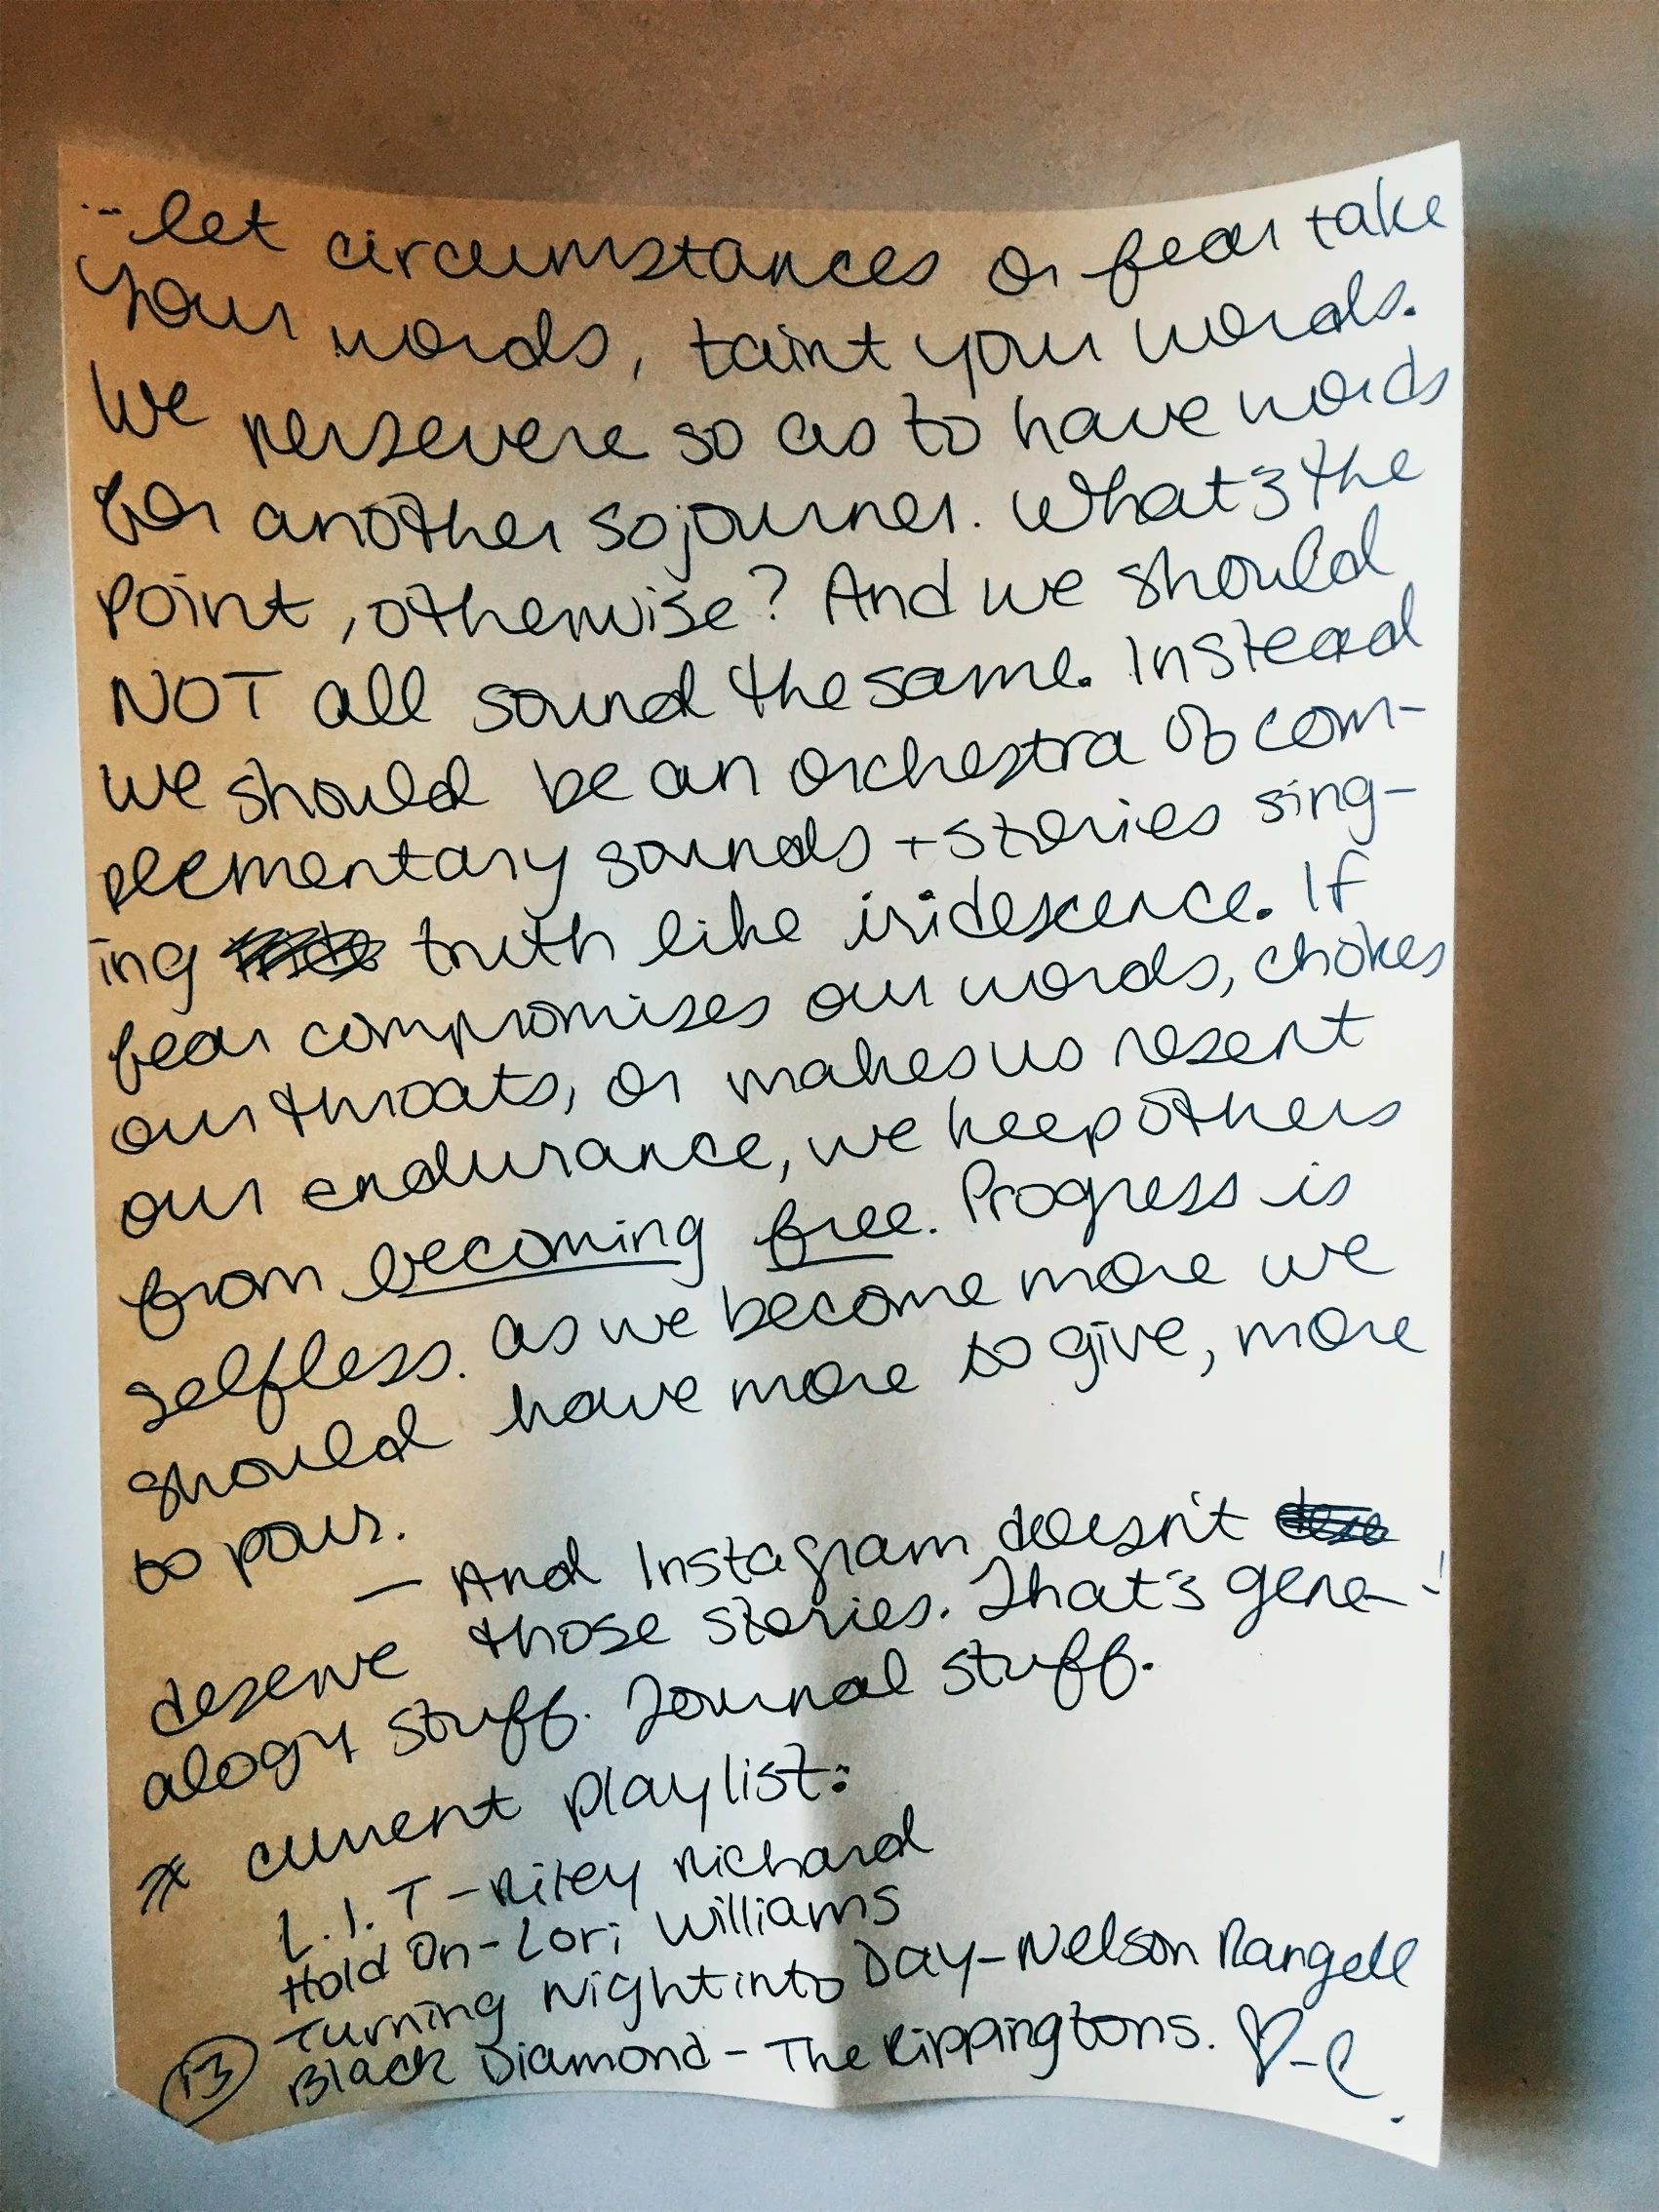 ... let circumstances or fear take
your words, taint your words.
We persevere so as to have words
for another sojourner. What's the
point, otherwise? And we should
NOT all sound the same. Instead
we should be an orchestra of com-
plementary sounds + stories sing-
ing truth like iridescence. If
fear compromises our words, chokes
our throats, or makes us resent
our endurance, we keep others
from becoming free. Progress is
selfless. As we become more we
should have more to give, more
to pour.
— And Instagram doesn't
deserve those stories. That's gene-
alogy stuff. Journal stuff.
* current playlist:
L.I.T - Riley Richard
Hold On - Lori Williams
Turning Night into Day - Nelson Rangell
Black Diamond - The Rippingtons. ♡ - C
13